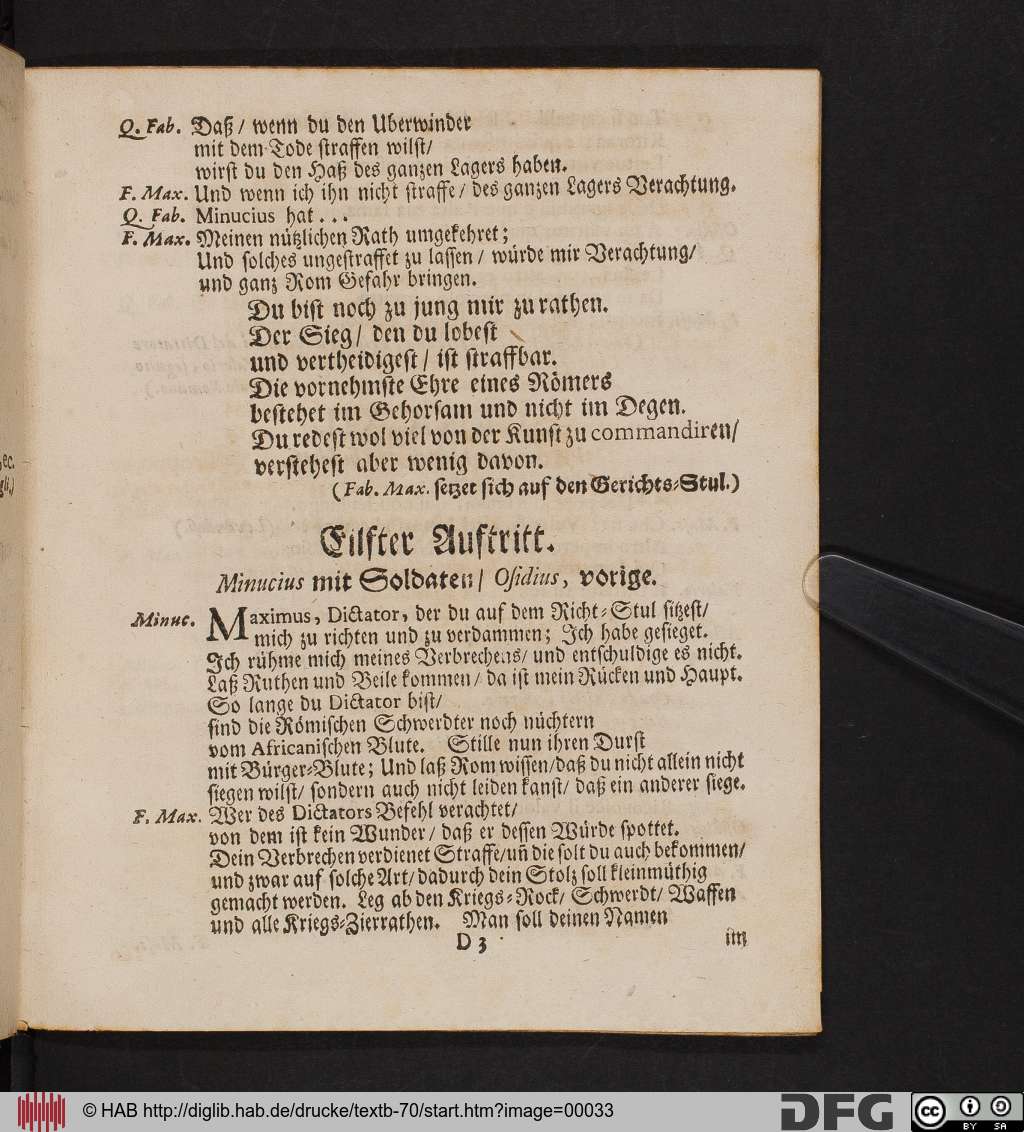 Q. Fab. Daß / wenn du den Uberwinder
mit dem Tode straffen wilst/
wirst du den Haß des ganzen Lagers haben.
F. Max. Und wenn ich ihn nicht straffe / des ganzen Lagers Verachtung.
Q. Fab. Minucius hat . . .
F. Max. Meinen nützlichen Rath umgekehret;
Und solches ungestraffet zu lassen / würde mir Verachtung/
und ganz Rom Gefahr bringen.
Du bist noch zu jung mir zu rathen.
Der Sieg / den du lobest
und vertheidigest / ist straffbar.
Die vornehmste Ehre eines Römers
bestehet im Gehorsam und nicht im Degen.
Du redest wol viel von der Kunst zu commandiren/
verstehest aber wenig davon.
(Fab. Max. setzet sich auf den Gerichts-Stul.)
Eilfter Auftritt.
Minucius mit Soldaten / Osidius, vorige.
Minuc. Maximus, Dictator, der du auf dem Richt-Stul sitzest/
mich zu richten und zu verdammen; Ich habe gesieget.
Ich rühme mich meines Verbrechens / und entschuldige es nicht.
Laß Ruthen und Beile kommen / da ist mein Rücken und Haupt.
So lange du Dictator bist/
sind die Römischen Schwerdter noch nüchtern
vom Africanischen Blute. Stille nun ihren Durst
mit Bürger-Blute; Und laß Rom wissen/daß du nicht allein nicht
siegen wilst / sondern auch nicht leiden kanst / daß ein anderer siege.
F. Max. Wer des Dictators Befehl verachtet/
von dem ist kein Wunder / daß er dessen Würde spottet.
Dein Verbrechen verdienet Straffe/uñ die solt du auch bekommen/
und zwar auf solche Art / dadurch dein Stolz soll kleinmüthig
gemacht werden. Leg ab den Kriegs-Rock / Schwerdt / Waffen
und alle Kriegs-Zierrathen. Man soll deinen Namen
D 3
im
ec.
© HAB http://diglib.hab.de/drucke/textb-70/start.htm?image=00033
DFG
cc BY SA